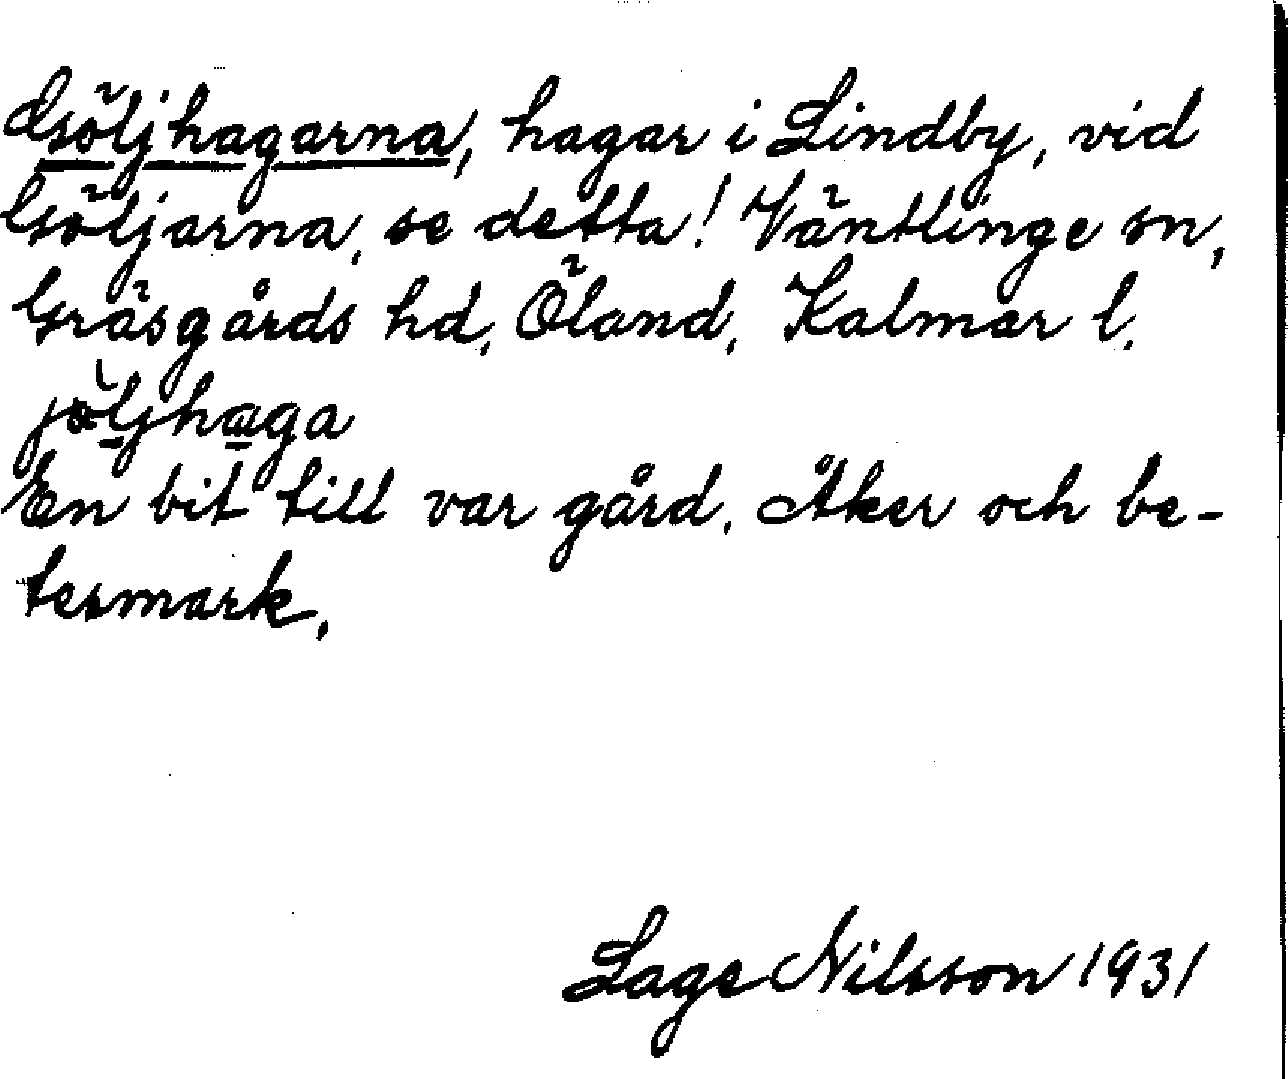 Göljhagarna, hagar i Lindby, vid
Göljarna, se detta! Väntlinge sn,
Gräsgårds hd, Öland, Kalmar l.
jöljhaga
En bit till var gård. Åker och be-
tesmark.
Lage Nilsson 1931